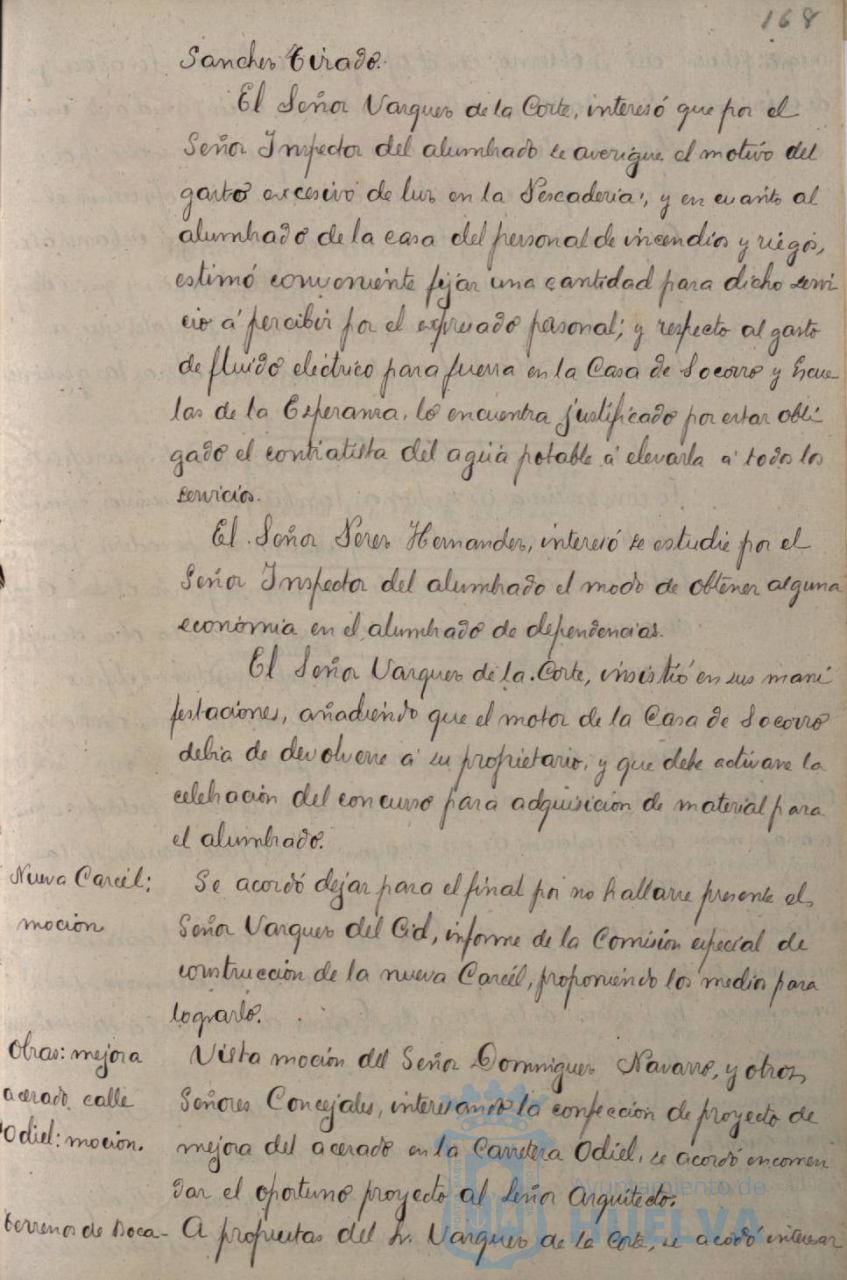 168
Sanchez Tirado.
El Señor Vazquez de la Corte, interesó que por el
Señor Inspector del alumbrado se averigue el motivo del
gasto excesivo de luz en la Pescaderia, y en cuanto al
alumbrado de la casa del personal de incendios y riegos,
estimó conveniente fijar una cantidad para dicho servi
cio á percibir por el expresado personal; y respecto al gasto
de fluido eléctrico para fuerza en la Casa de Socorro y Escue
las de la Esperanza, lo encuentra justificado por estar obli
gado el contratista del agua potable á elevarla á todos los
servicios.
El Señor Perez Hernandez, interesó se estudie por el
Señor Inspector del alumbrado el modo de obtener alguna
economia en el alumbrado de dependencias.
El Señor Vazquez de la Corte, insistió en sus mani
festaciones, añadiendo que el motor de la Casa de Socorro
debia de devolverse á su propietario, y que debe activarse la
celebración del concurso para adquisición de material para
el alumbrado.
Nueva Carcél: Se acordó dejar para el final por no hallarse presente el
moción Señor Vazquez del Cid, informe de la Comisión especial de
construcción de la nueva Carcél, proponiendo los medios para
lograrlo.
Obras: mejora Vista moción del Señor Dominguez Navarro, y otros
acerado calle Señores Concejales, interesando la confección de proyecto de
Odiel: moción. mejora del acerado en la Carretera Odiel, se acordó encomen
dar el oportuno proyecto al Señor Arquitecto.
terrenos de Roca- A propuestas del Sr. Vazquez de la Corte, se acordó interesar
Ayuntamiento de
HUELVA